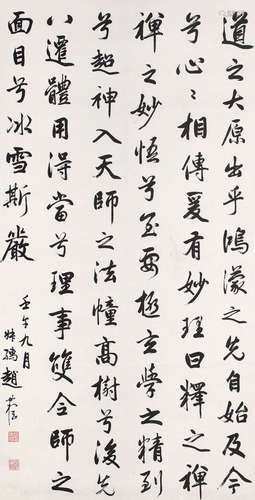 道之大原出乎鴻濛之先自始及今
兮心心相傳爰有妙理曰釋之禪
禪之妙悟兮至要極玄學之精到
兮超神入天師之法幢高樹兮後先
八還體用得當兮理事雙合師之
面目兮冰雪斯嚴
壬午九月
趙